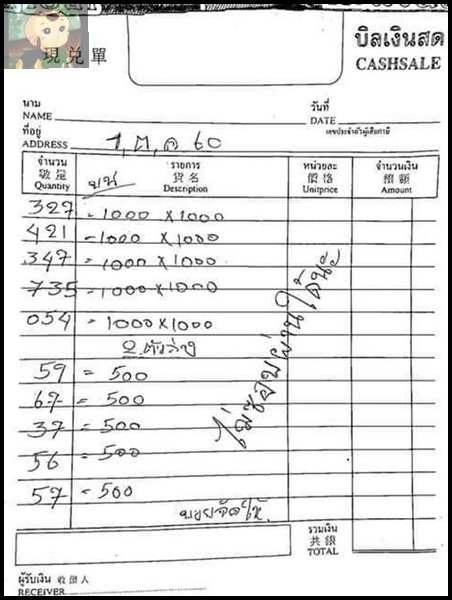 現兌單
บิลเงินสด
CASHSALE
นาม
NAME
วันที่
DATE
ที่อยู่
ADDRESS
เลขประจำตัวผู้เสียภาษี
1, ต, ค 60
จำนวน รายการ หน่วยละ จำนวนเงิน
數量 貨名 價格 銀額
Quantity Description Unitprice Amount
บน
327 = 1000 x 1000
421 = 1000 x 1000
347 = 1000 x 1000
735 = 1000 x 1000
054 = 1000 x 1000
2.ตัวล่าง
59 = 500
67 = 500
37 = 500
56 = 500
57 = 500
ไม่ชอบผ่านได้นะ
รวมเงิน
共銀
TOTAL
ผู้รับเงิน 收銀人
RECEIVER